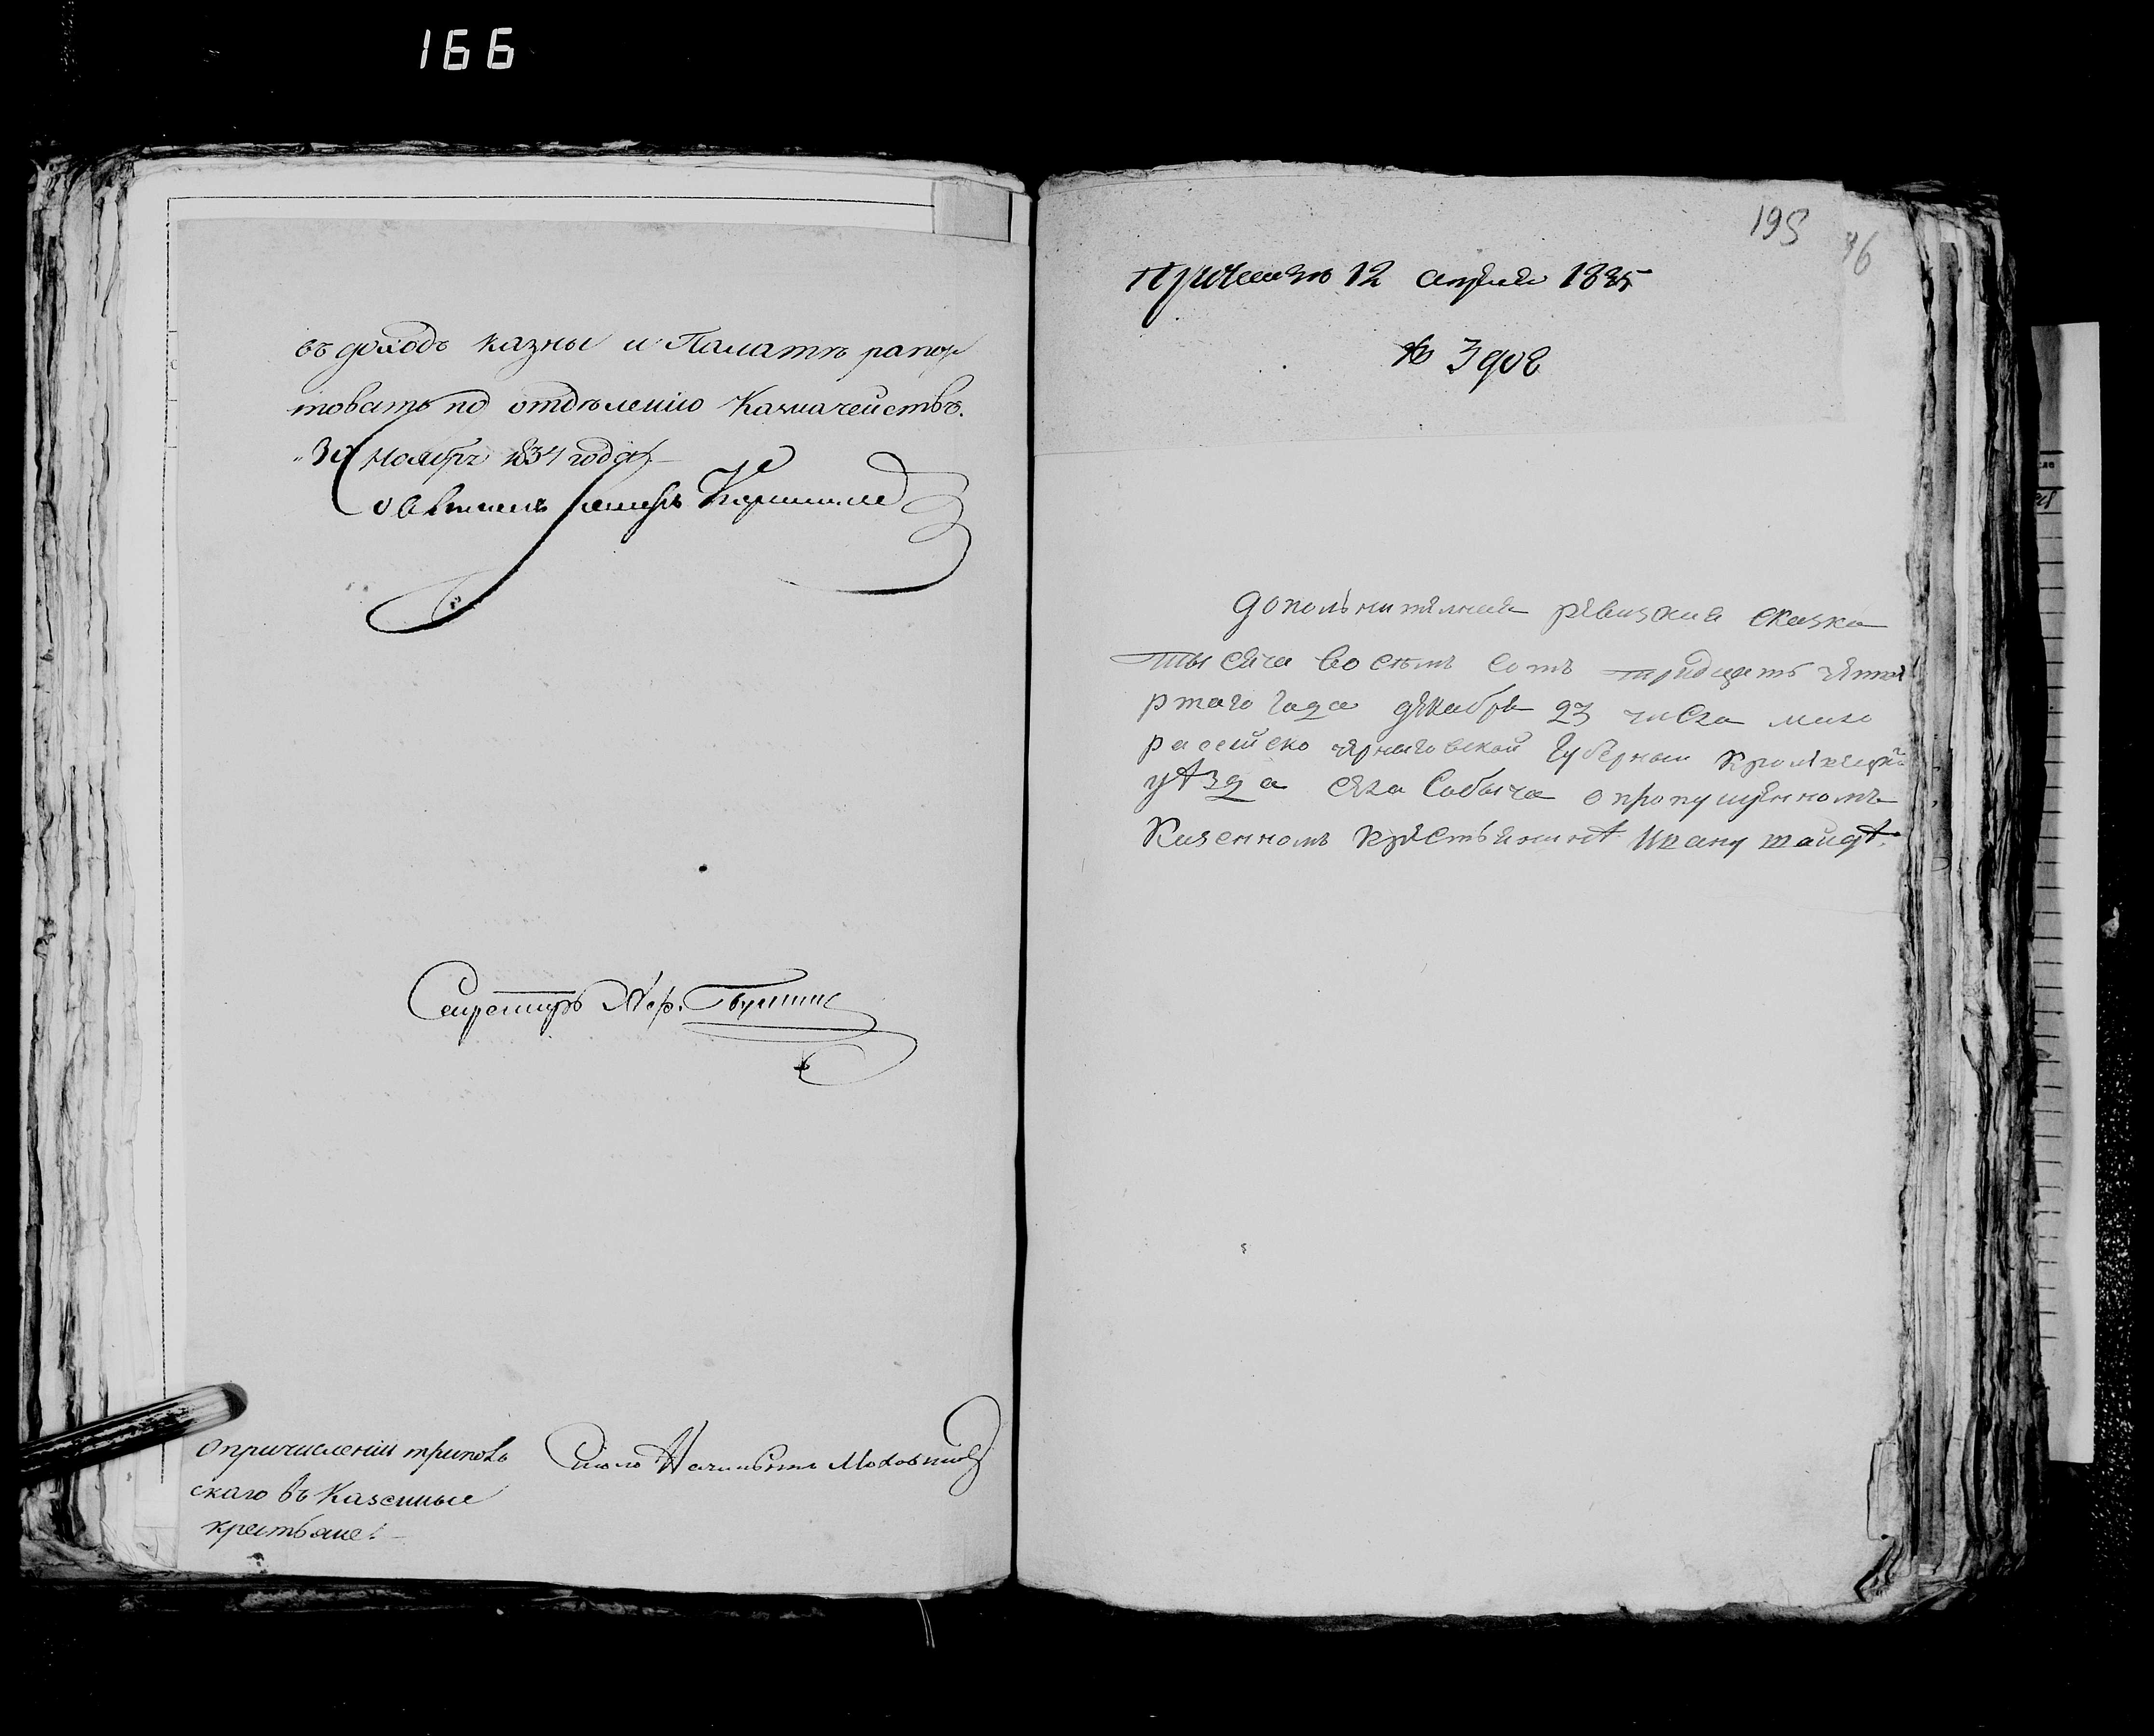 166
въ доходъ казны и Палатѣ рапор
товать по отдѣленію Казначействъ.
"30" Ноябрь 1834 года
Совѣтникъ
Секретарь
о причисленіи трипол
скаго въ Казенные
крестьяне.
Столо Начальникъ
195
96
12 апреля 1835
№ 3902
дополнителная рѣвизкая сказка
тысяча восемъ сотъ тридцать четве
ртого года декабря 23 числа мало
россійско черниговской губерныи кролевецкого
уѣзда села Собыча о пропущенномъ
Казенномъ крестьянинѣ Ивану